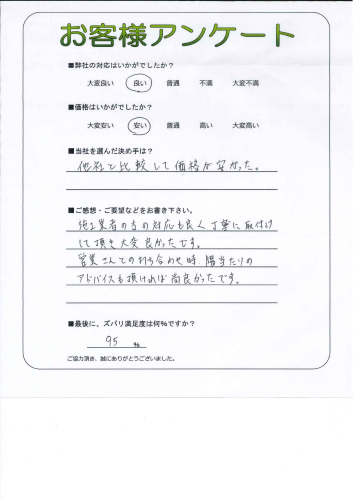 お客様アンケート
■弊社の対応はいかがでしたか?
大変良い 良い 普通 不満 大変不満
■価格はいかがでしたか?
大変安い 安い 普通 高い 大変高い
■当社を選んだ決め手は?
他社と比較して価格が安かった。
■ご感想・ご要望などをお書き下さい。
施工業者の方の対応も良く丁寧に取付け
して頂き大変良かったです。
営業さんとの打ち合わせ時、陽当たりの
アドバイスも頂ければ尚良かったです。
■最後に、ズバリ満足度は何%ですか?
95 %
ご協力頂き、誠にありがとうございました。